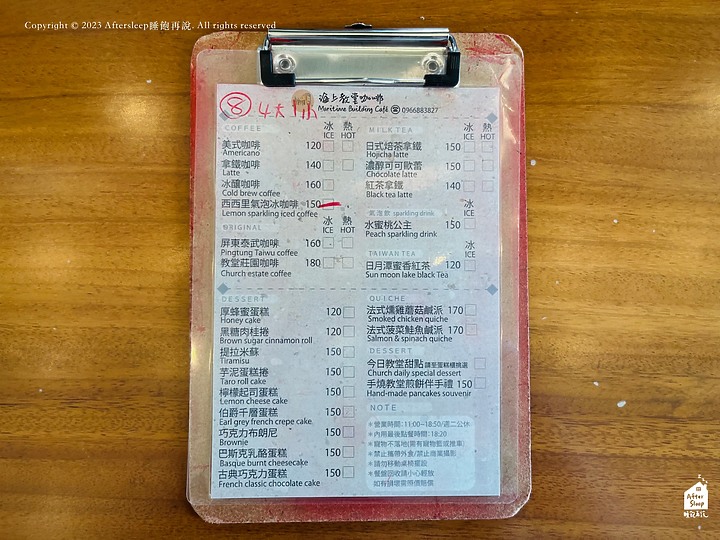 Copyright © 2023 Aftersleep睡飽再說. All rights reserved
⑧ 4大1小
海上教堂咖啡
Maritime Building Café ☎ 0966883827
COFFEE
冰 ICE 熱 HOT
美式咖啡 120
Americano
拿鐵咖啡 140
Latte
冰釀咖啡 160
Cold brew coffee
西西里氣泡冰咖啡 150
Lemon sparkling iced coffee
ORIGINAL
冰 ICE 熱 HOT
屏東泰武咖啡 160
Pingtung Taiwu coffee
教堂莊園咖啡 180
Church estate coffee
MILK TEA
冰 ICE 熱 HOT
日式焙茶拿鐵 150
Hojicha latte
濃醇可可歐蕾 150
Chocolate latte
紅茶拿鐵 140
Black tea latte
氣泡飲 sparkling drink
冰 ICE
水蜜桃公主 150
Peach sparkling drink
TAIWAN TEA
冰 ICE
日月潭蜜香紅茶 120
Sun moon lake black Tea
DESSERT
厚蜂蜜蛋糕 120
Honey cake
黑糖肉桂捲 120
Brown sugar cinnamon roll
提拉米蘇 150
Tiramisu
芋泥蛋糕捲 150
Taro roll cake
檸檬起司蛋糕 150
Lemon cheese cake
伯爵千層蛋糕 150
Earl grey french crepe cake
巧克力布朗尼 150
Brownie
巴斯克乳酪蛋糕 150
Basque burnt cheesecake
古典巧克力蛋糕 150
French classic chocolate cake
QUICHE
法式燻雞蘑菇鹹派 170
Smoked chicken quiche
法式菠菜鮭魚鹹派 170
Salmon & spinach quiche
DESSERT
今日教堂甜點 請至蛋糕櫃挑選
Church daily special dessert
手燒教堂煎餅伴手禮 150
Hand-made pancakes souvenir
NOTE
*營業時間:11:00~18:50/週二公休
*內用最後點餐時間:18:20
*寵物不落地(需有寵物籃或推車)
*禁止攜帶外食/禁止商業攝影
*請勿移動桌椅擺設
*餐盤回收請小心輕放
如有損壞需照價賠償
After Sleep
睡飽再說